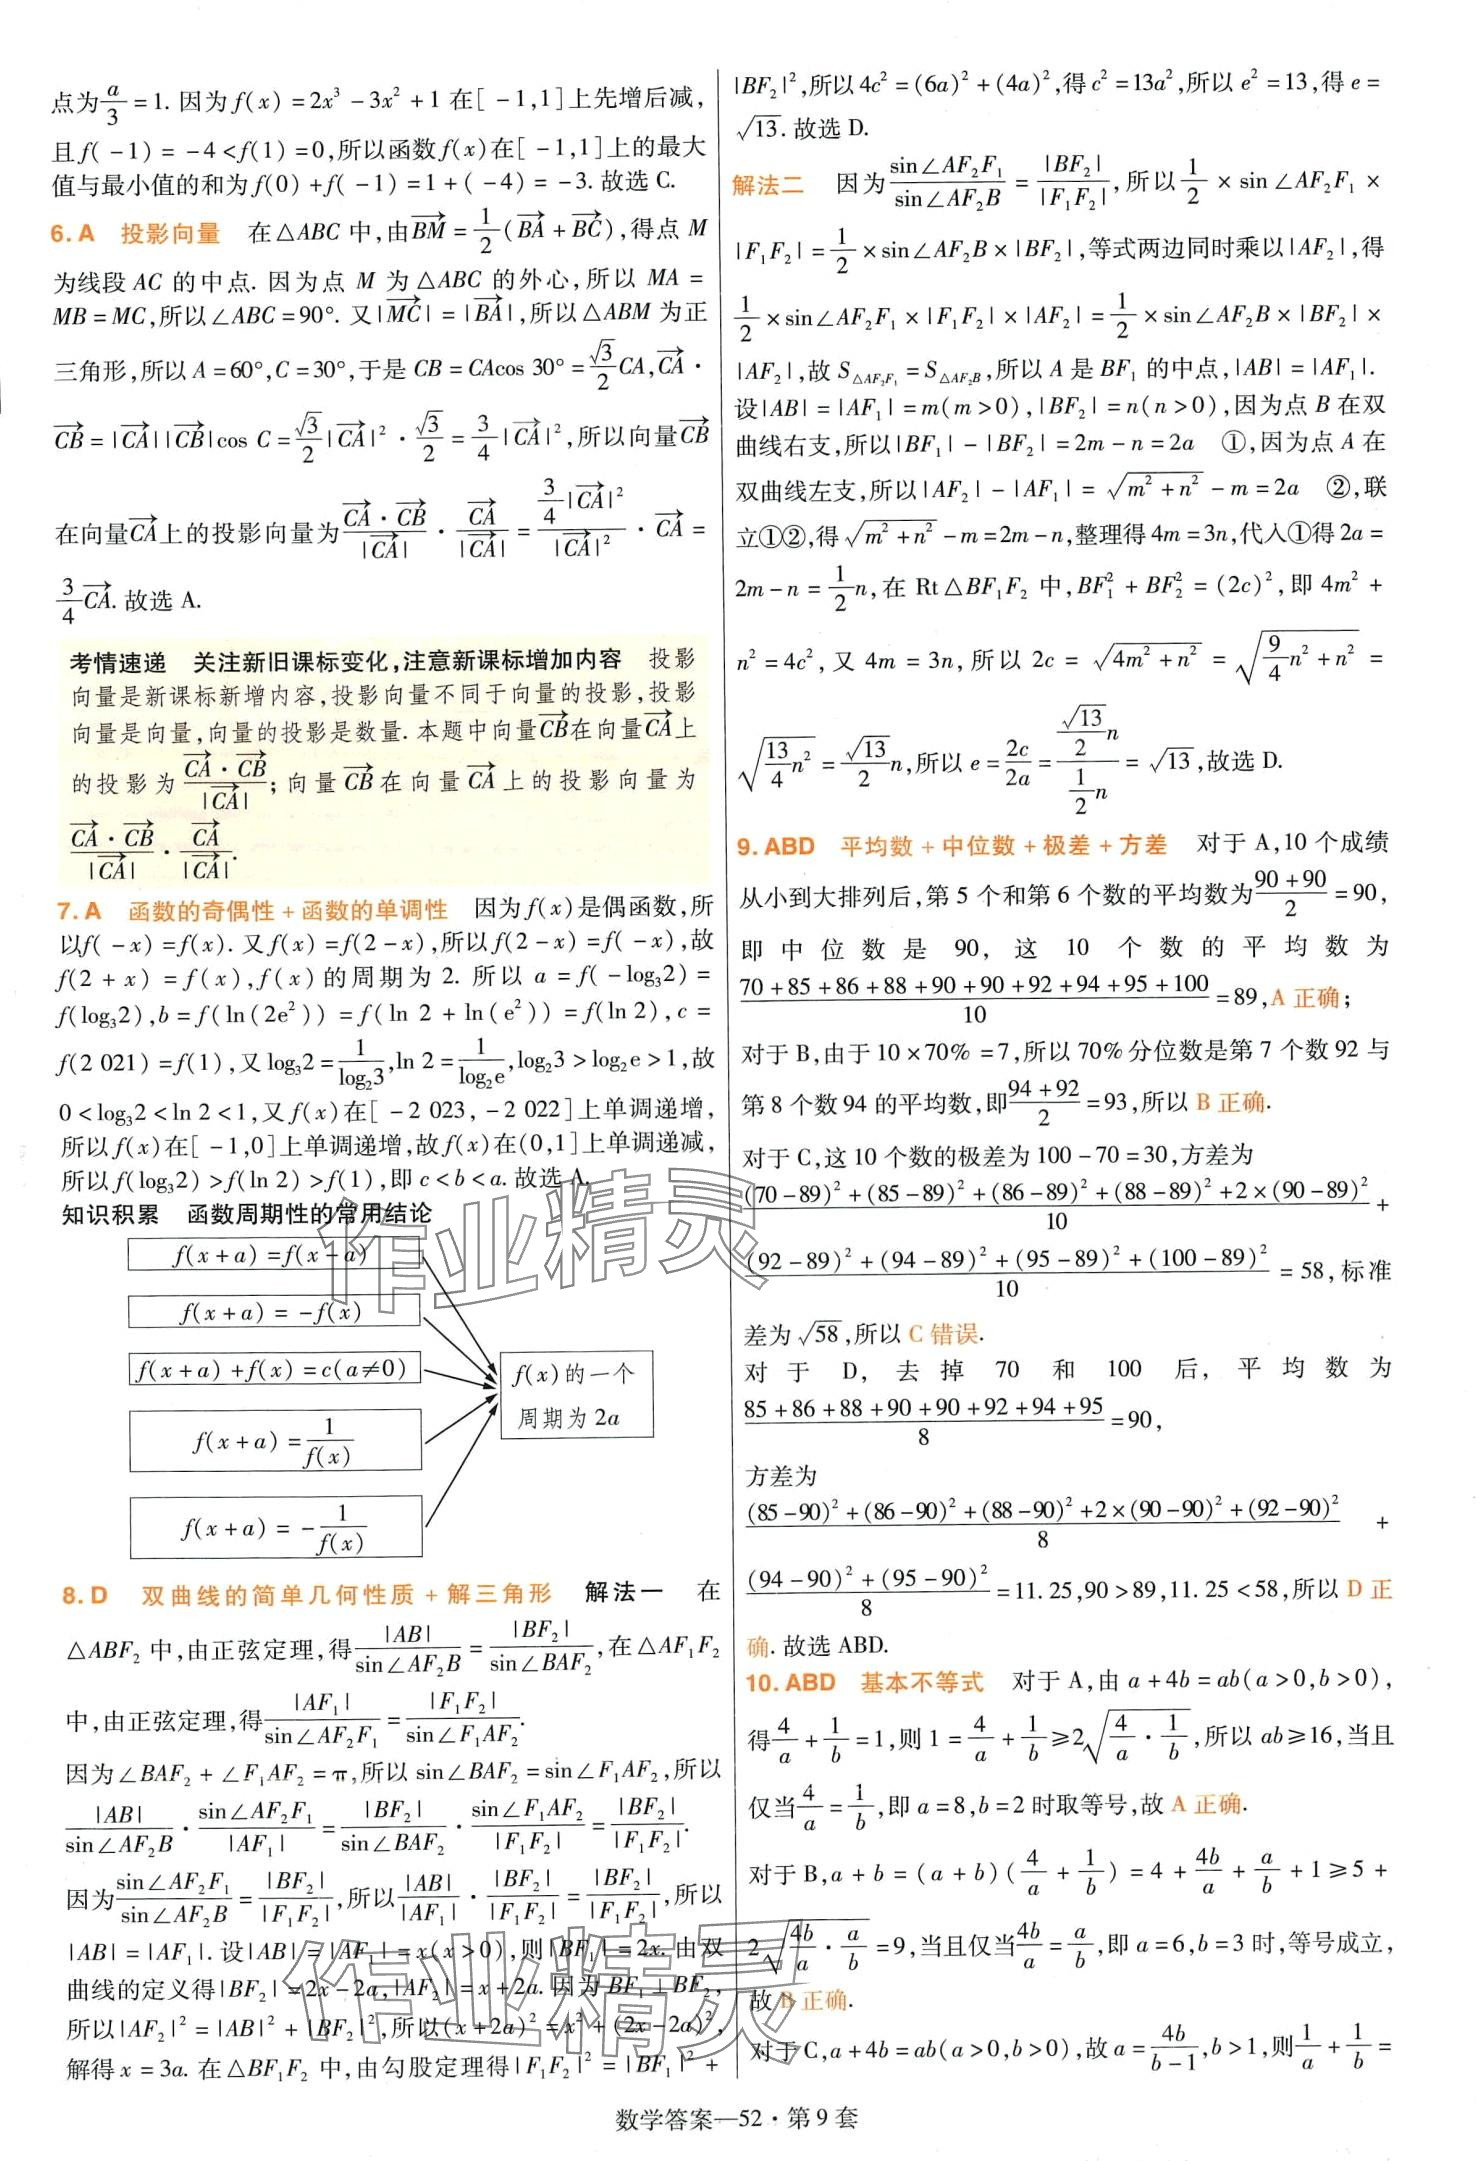 点为a/3=1. 因为f(x)=2x³-3x²+1在[-1,1]上先增后减,
且f(-1)=-4<f(1)=0,所以函数f(x)在[-1,1]上的最大
值与最小值的和为f(0)+f(-1)=1+(-4)=-3. 故选C.
6. A 投影向量 在△ABC中,由BM→=1/2(BA→+BC→),得点M
为线段AC的中点. 因为点M为△ABC的外心,所以MA=
MB=MC,所以∠ABC=90°. 又|MC→|=|BA→|,所以△ABM为正
三角形,所以A=60°,C=30°,于是CB=CAcos 30°=√3/2 CA,CA→·
CB→=|CA→||CB→|cos C=√3/2|CA→|²·√3/2=3/4|CA→|²,所以向量CB→
在向量CA→上的投影向量为(CA→·CB→)/|CA→|·CA→/|CA→|=(3/4|CA→|²)/|CA→|²·CA→=
3/4 CA→. 故选A.
考情速递 关注新旧课标变化,注意新课标增加内容 投影
向量是新课标新增内容,投影向量不同于向量的投影,投影
向量是向量,向量的投影是数量. 本题中向量CB→在向量CA→上
的投影为(CA→·CB→)/|CA→|;向量CB→在向量CA→上的投影向量为
(CA→·CB→)/|CA→|·CA→/|CA→|.
7. A 函数的奇偶性+函数的单调性 因为f(x)是偶函数,所
以f(-x)=f(x). 又f(x)=f(2-x),所以f(2-x)=f(-x),故
f(2+x)=f(x),f(x)的周期为2. 所以a=f(-log₃2)=
f(log₃2),b=f(ln(2e²))=f(ln 2+ln(e²))=f(ln 2),c=
f(2 021)=f(1),又log₃2=1/log₂3,ln 2=1/log₂e,log₂3>log₂e>1,故
0<log₃2<ln 2<1,又f(x)在[-2 023,-2 022]上单调递增,
所以f(x)在[-1,0]上单调递增,故f(x)在(0,1]上单调递减,
所以f(log₃2)>f(ln 2)>f(1),即c<b<a. 故选A.
知识积累 函数周期性的常用结论
f(x+a)=f(x-a)
f(x+a)=-f(x)
f(x+a)+f(x)=c(a≠0)
f(x+a)=1/f(x)
f(x+a)=-1/f(x)
f(x)的一个
周期为2a
8. D 双曲线的简单几何性质+解三角形 解法一 在
△ABF₂中,由正弦定理,得|AB|/sin∠AF₂B=|BF₂|/sin∠BAF₂,在△AF₁F₂
中,由正弦定理,得|AF₁|/sin∠AF₂F₁=|F₁F₂|/sin∠F₁AF₂.
因为∠BAF₂+∠F₁AF₂=π,所以sin∠BAF₂=sin∠F₁AF₂,所以
|AB|/sin∠AF₂B·sin∠AF₂F₁/|AF₁|=|BF₂|/sin∠BAF₂·sin∠F₁AF₂/|F₁F₂|=|BF₂|/|F₁F₂|.
因为sin∠AF₂F₁/sin∠AF₂B=|BF₂|/|F₁F₂|,所以|AB|/|AF₁|·|BF₂|/|F₁F₂|=|BF₂|/|F₁F₂|,所以
|AB|=|AF₁|. 设|AB|=|AF₁|=x(x>0),则|BF₁|=2x. 由双
曲线的定义得|BF₂|=2x-2a,|AF₂|=x+2a. 因为BF₁⊥BF₂,
所以|AF₂|²=|AB|²+|BF₂|²,所以(x+2a)²=x²+(2x-2a)²,
解得x=3a. 在△BF₁F₂中,由勾股定理得|F₁F₂|²=|BF₁|²+
|BF₂|²,所以4c²=(6a)²+(4a)²,得c²=13a²,所以e²=13,得e=
√13. 故选D.
解法二 因为sin∠AF₂F₁/sin∠AF₂B=|BF₂|/|F₁F₂|,所以1/2×sin∠AF₂F₁×
|F₁F₂|=1/2×sin∠AF₂B×|BF₂|,等式两边同时乘以|AF₂|,得
1/2×sin∠AF₂F₁×|F₁F₂|×|AF₂|=1/2×sin∠AF₂B×|BF₂|×
|AF₂|,故S△AF₂F₁=S△AF₂B,所以A是BF₁的中点,|AB|=|AF₁|.
设|AB|=|AF₁|=m(m>0),|BF₂|=n(n>0),因为点B在双
曲线右支,所以|BF₁|-|BF₂|=2m-n=2a ①,因为点A在
双曲线左支,所以|AF₂|-|AF₁|=√(m²+n²)-m=2a ②,联
立①②,得√(m²+n²)-m=2m-n,整理得4m=3n,代入①得2a=
2m-n=1/2n,在Rt△BF₁F₂中,BF₁²+BF₂²=(2c)²,即4m²+
n²=4c²,又4m=3n,所以2c=√(4m²+n²)=√(9/4n²+n²)=
√(13/4n²)=√13/2n,所以e=2c/2a=(√13/2n)/(1/2n)=√13,故选D.
9. ABD 平均数+中位数+极差+方差 对于A,10个成绩
从小到大排列后,第5个和第6个数的平均数为(90+90)/2=90,
即中位数是90,这10个数的平均数为
(70+85+86+88+90+90+92+94+95+100)/10=89,A正确;
对于B,由于10×70%=7,所以70%分位数是第7个数92与
第8个数94的平均数,即(94+92)/2=93,所以B正确.
对于C,这10个数的极差为100-70=30,方差为
((70-89)²+(85-89)²+(86-89)²+(88-89)²+2×(90-89)²)/10+
((92-89)²+(94-89)²+(95-89)²+(100-89)²)/10=58,标准
差为√58,所以C错误.
对于D,去掉70和100后,平均数为
(85+86+88+90+90+92+94+95)/8=90,
方差为
((85-90)²+(86-90)²+(88-90)²+2×(90-90)²+(92-90)²)/8+
((94-90)²+(95-90)²)/8=11.25,90>89,11.25<58,所以D正
确. 故选ABD.
10. ABD 基本不等式 对于A,由a+4b=ab(a>0,b>0),
得4/a+1/b=1,则1=4/a+1/b≥2√(4/a·1/b),所以ab≥16,当且
仅当4/a=1/b,即a=8,b=2时取等号,故A正确.
对于B,a+b=(a+b)(4/a+1/b)=4+4b/a+a/b+1≥5+
2√(4b/a·a/b)=9,当且仅当4b/a=a/b,即a=6,b=3时,等号成立,
故B正确.
对于C,a+4b=ab(a>0,b>0),故a=4b/(b-1),b>1,则1/a+1/b=
数学答案—52·第9套
作业精灵
作业精灵